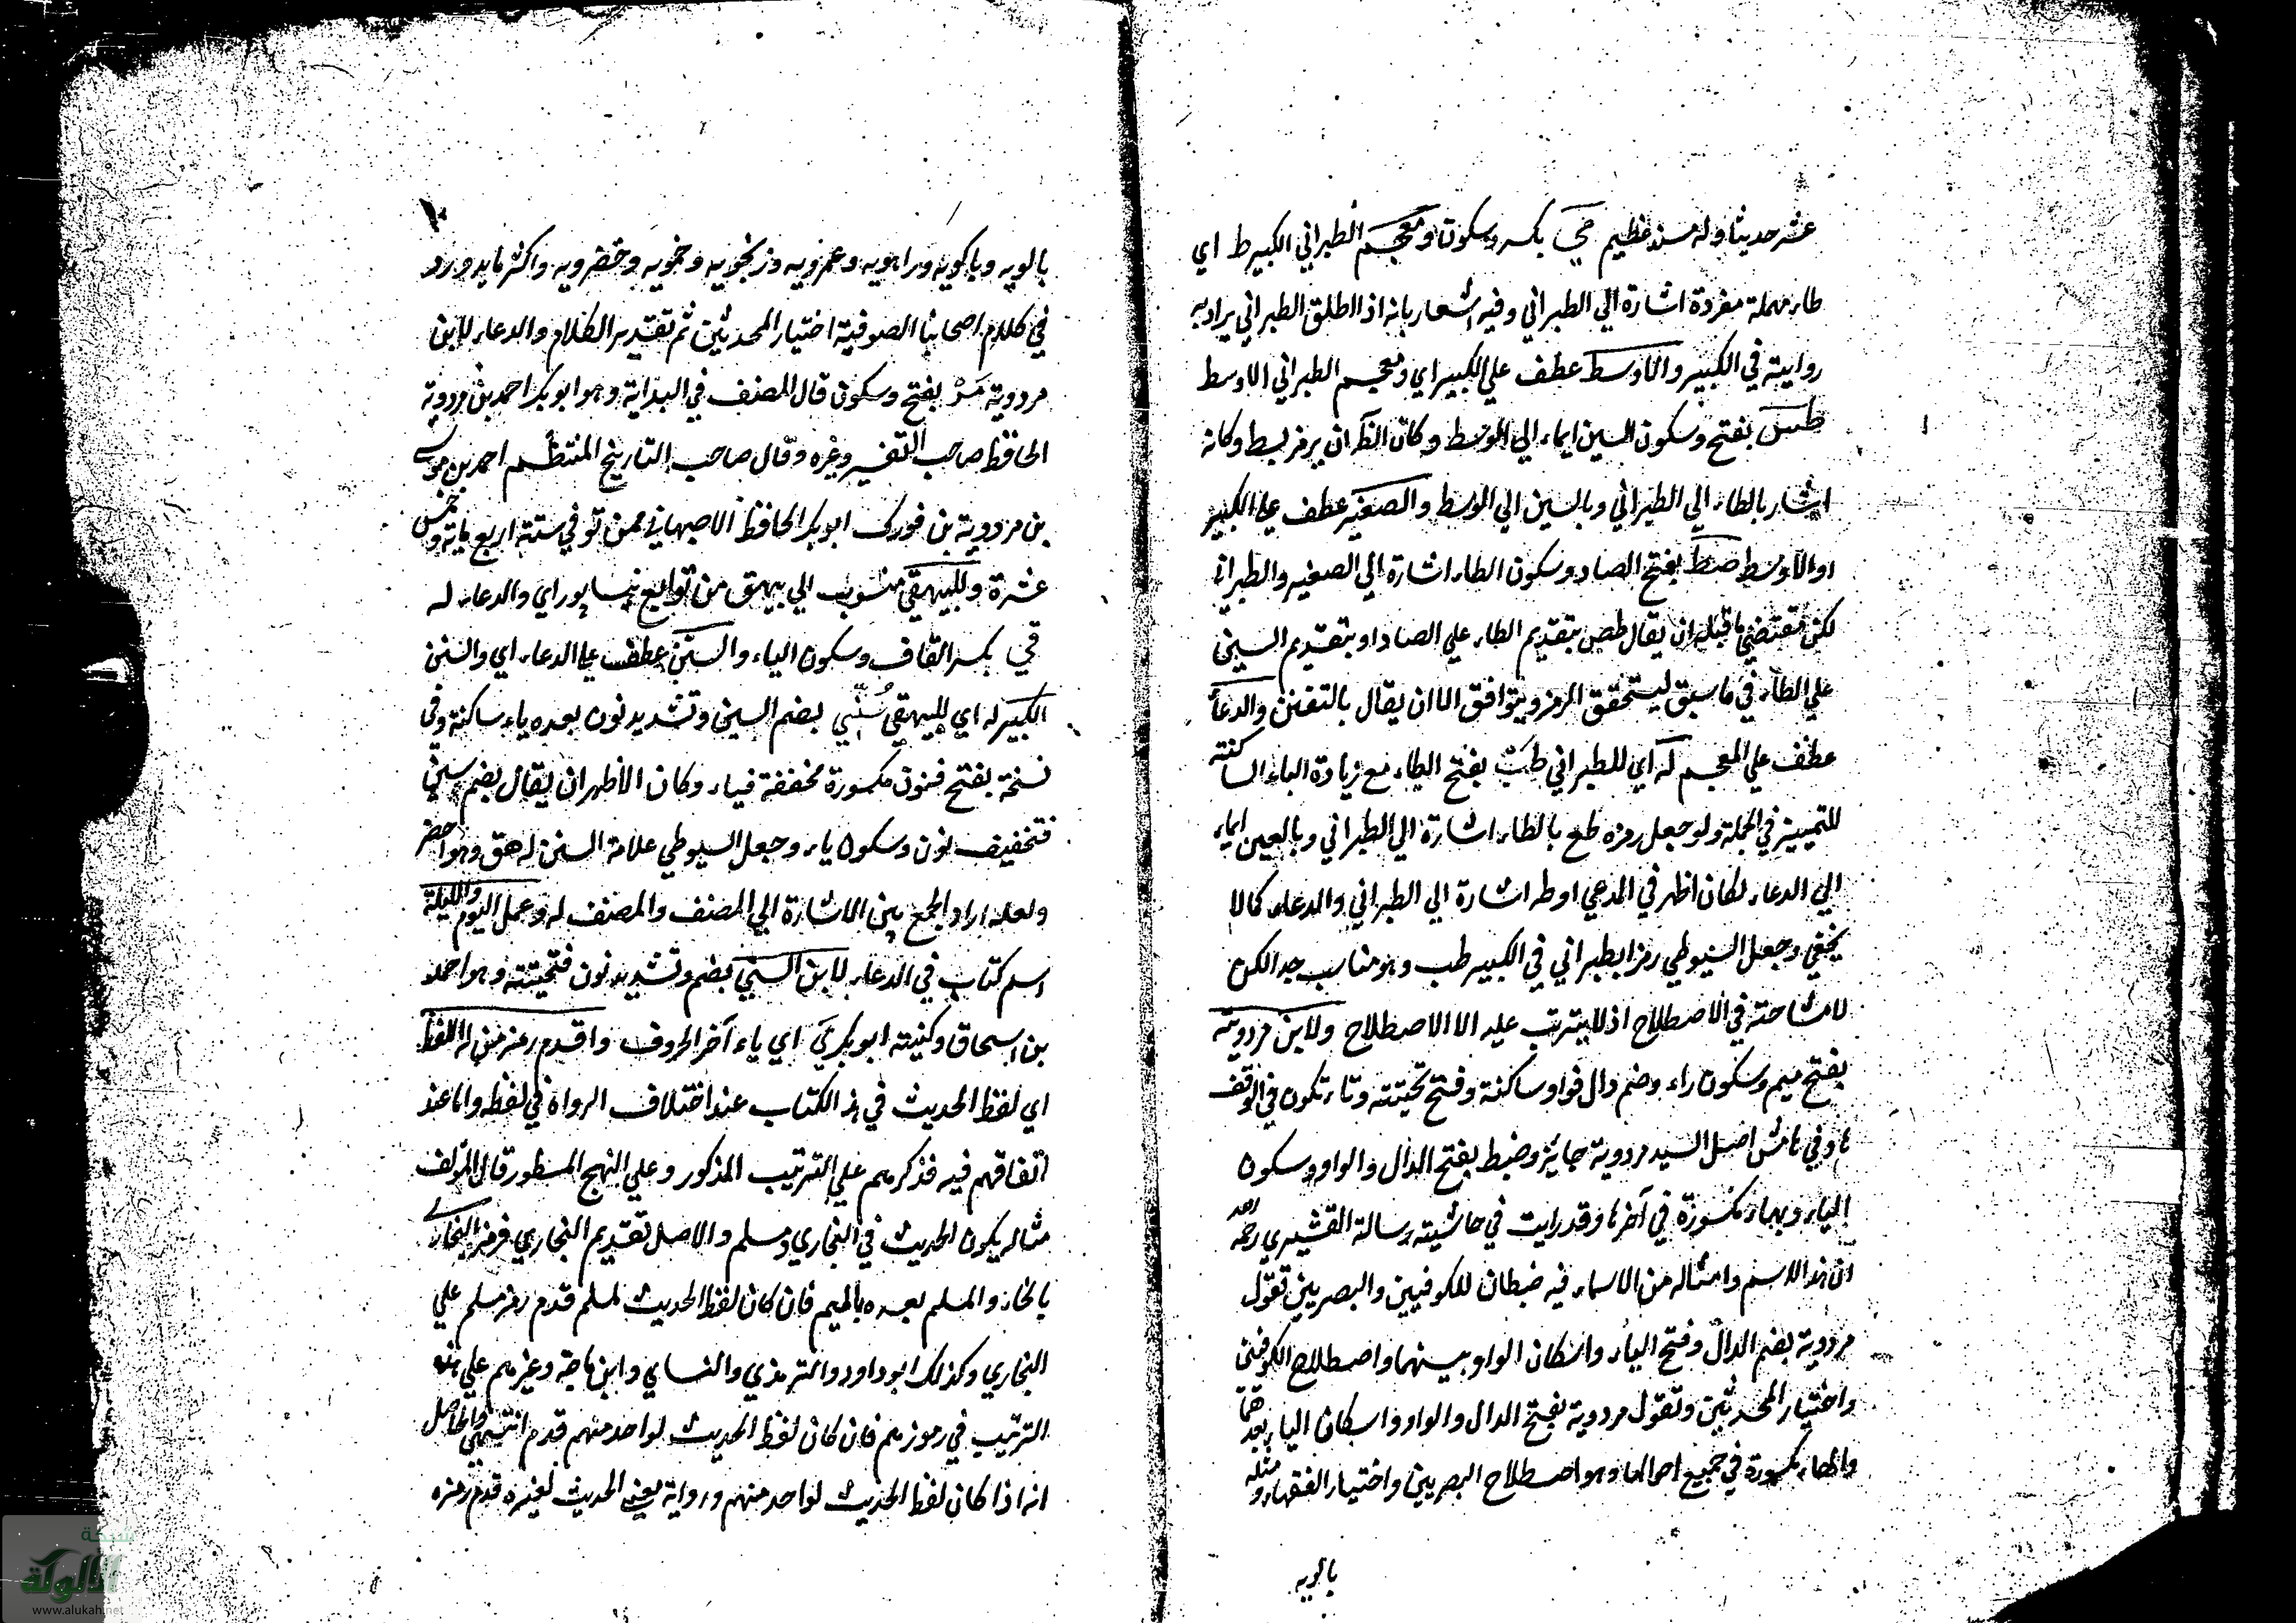 عشر حديثا وله مسند عظيم مي بكسر وسكون ومعجم الطبراني الكبير ط اي
طاء مهملة مفردة اشارة الي الطبراني وفيه اشعار بانه اذا اطلق الطبراني يراد به
روايته في الكبير والاوسط عطف علي الكبير اي ومعجم الطبراني الاوسط
طس بفتح وسكون السين ايماء الي الوسط وكان الظ ان يرمز بسط وكانه
اشار بالطاء الي الطبراني وبالسين الي الوسط والصغير عطف علي الكبير
او الاوسط صط بفتح الصاد وسكون الطاء اشارة الي الصغير والطبراني
لكن مقتضي ما قبله ان يقال طص بتقديم الطاء علي الصاد او بتقديم السين
علي الطاء في ما سبق ليتحقق الرمز ويتوافق الا ان يقال بالتفنن والدعاء
عطف علي المعجم له اي للطبراني طب بفتح الطاء مع زيادة الباء الساكنة
للتمييز في الجملة ولو جعل رمزه طع بالطاء اشارة الي الطبراني وبالعين ايماء
الي الدعاء لكان اظهر في المدعي او طد اشارة الي الطبراني والدعاء كما لا
يخفي وجعل السيوطي رمز الطبراني في الكبير طب وهو مناسب جدا لكن
لا مشاحته في الاصطلاح اذ لا يترتب عليه الا الاصطلاح ولابن مردوية
بفتح ميم وسكون راء وضم دال فواو ساكنة وفتح تحيتة وتاء تكون في الوقف
ها وفي هامش اصل السيد مردوية جايز وضبط بفتح الدال والواو وسكون
الياء وبهاء مكسورة في آخرها وقد رايت في حاشيته رسالة القشيري رحمه الله
ان هذا الاسم وامثاله من الاسماء فيه ضبطان للكوفيين والبصريين تقول
مردوية بضم الدال وفتح الياء واسكان الواو بينهما واصطلاح الكوفين
واختيار المحدثين وتقول مردوية بفتح الدال والواو واسكان الياء بعدهما
والهاء مكسورة في جميع احوالها وهو اصطلاح البصريين واختيار الفقهاء ومثله
بالويه
١٠
بالويه وباكويه وراهويه وعمرويه وزنجويه وحمويه وخضرويه واكثر ما يدور
في كلام اصحابنا الصوفية اختيار المحدثين ثم تقدير الكلام والدعاء لابن
مردوية مَرْ بفتح وسكون قال المصنف في البداية وهو ابو بكر احمد بن مردوية
الحافظ صاحب التفسير وغيره وقال صاحب التاريخ المنتظم احمد بن موسي
بن مردوية بن فورك ابو بكر الحافظ الاصبهاني ممن توفي ستة اربع ماية وخمس
عشرة وللبيهقي منسوب الي بيهق من توابع نيسابور اي والدعاء له
قي بكسر القاف وسكون الياء والسنن عطف علي الدعاء اي والسنن
الكبير له اي للبيهقي سُنّي بضم السين وتشديد نون بعده ياء ساكنة وفي
نسخة بفتح فنون مكسورة مخففة فياء وكان الاظهر ان يقال بضم سين
فتخفيف نون وسكون ياء وجعل السيوطي علامة السنن له هق وهو اخضر
ولعله اراد الجمع بين الاشارة الي المصنف والمصنف له وعمل اليوم والليلة
اسم كتاب في الدعاء لابن السني بضم وتشديد نون فتحيتة وهو احمد
بن اسحاق وكنيته ابو بكر ي اي ياء آخر الحروف واقدم رمز من له اللفظ
اي لفظ الحديث في هذا الكتاب عند اختلاف الرواة في لفظه واما عند
اتفاقهم فيه فذكرهم علي الترتيب المذكور وعلي النهج المسطور قال المولف
مثاله يكون الحديث في البخاري ومسلم والاصل تقديم البخاري فرمز البخاري
بالخاء والمسلم بعده بالميم فان كان لفظ الحديث لمسلم قدم رمز مسلم علي
البخاري وكذلك ابو داود والترمذي والنساي وابن ماجة وغيرهم علي هذا
الترتيب في رموزهم فان كان لفظ الحديث لواحد منهم قدم انتهي والحاصل
انه اذا كان لفظ الحديث لواحد منهم ورواية معني الحديث لغيره قدم رمزه
شبكة
الألوكة
www.alukah.net